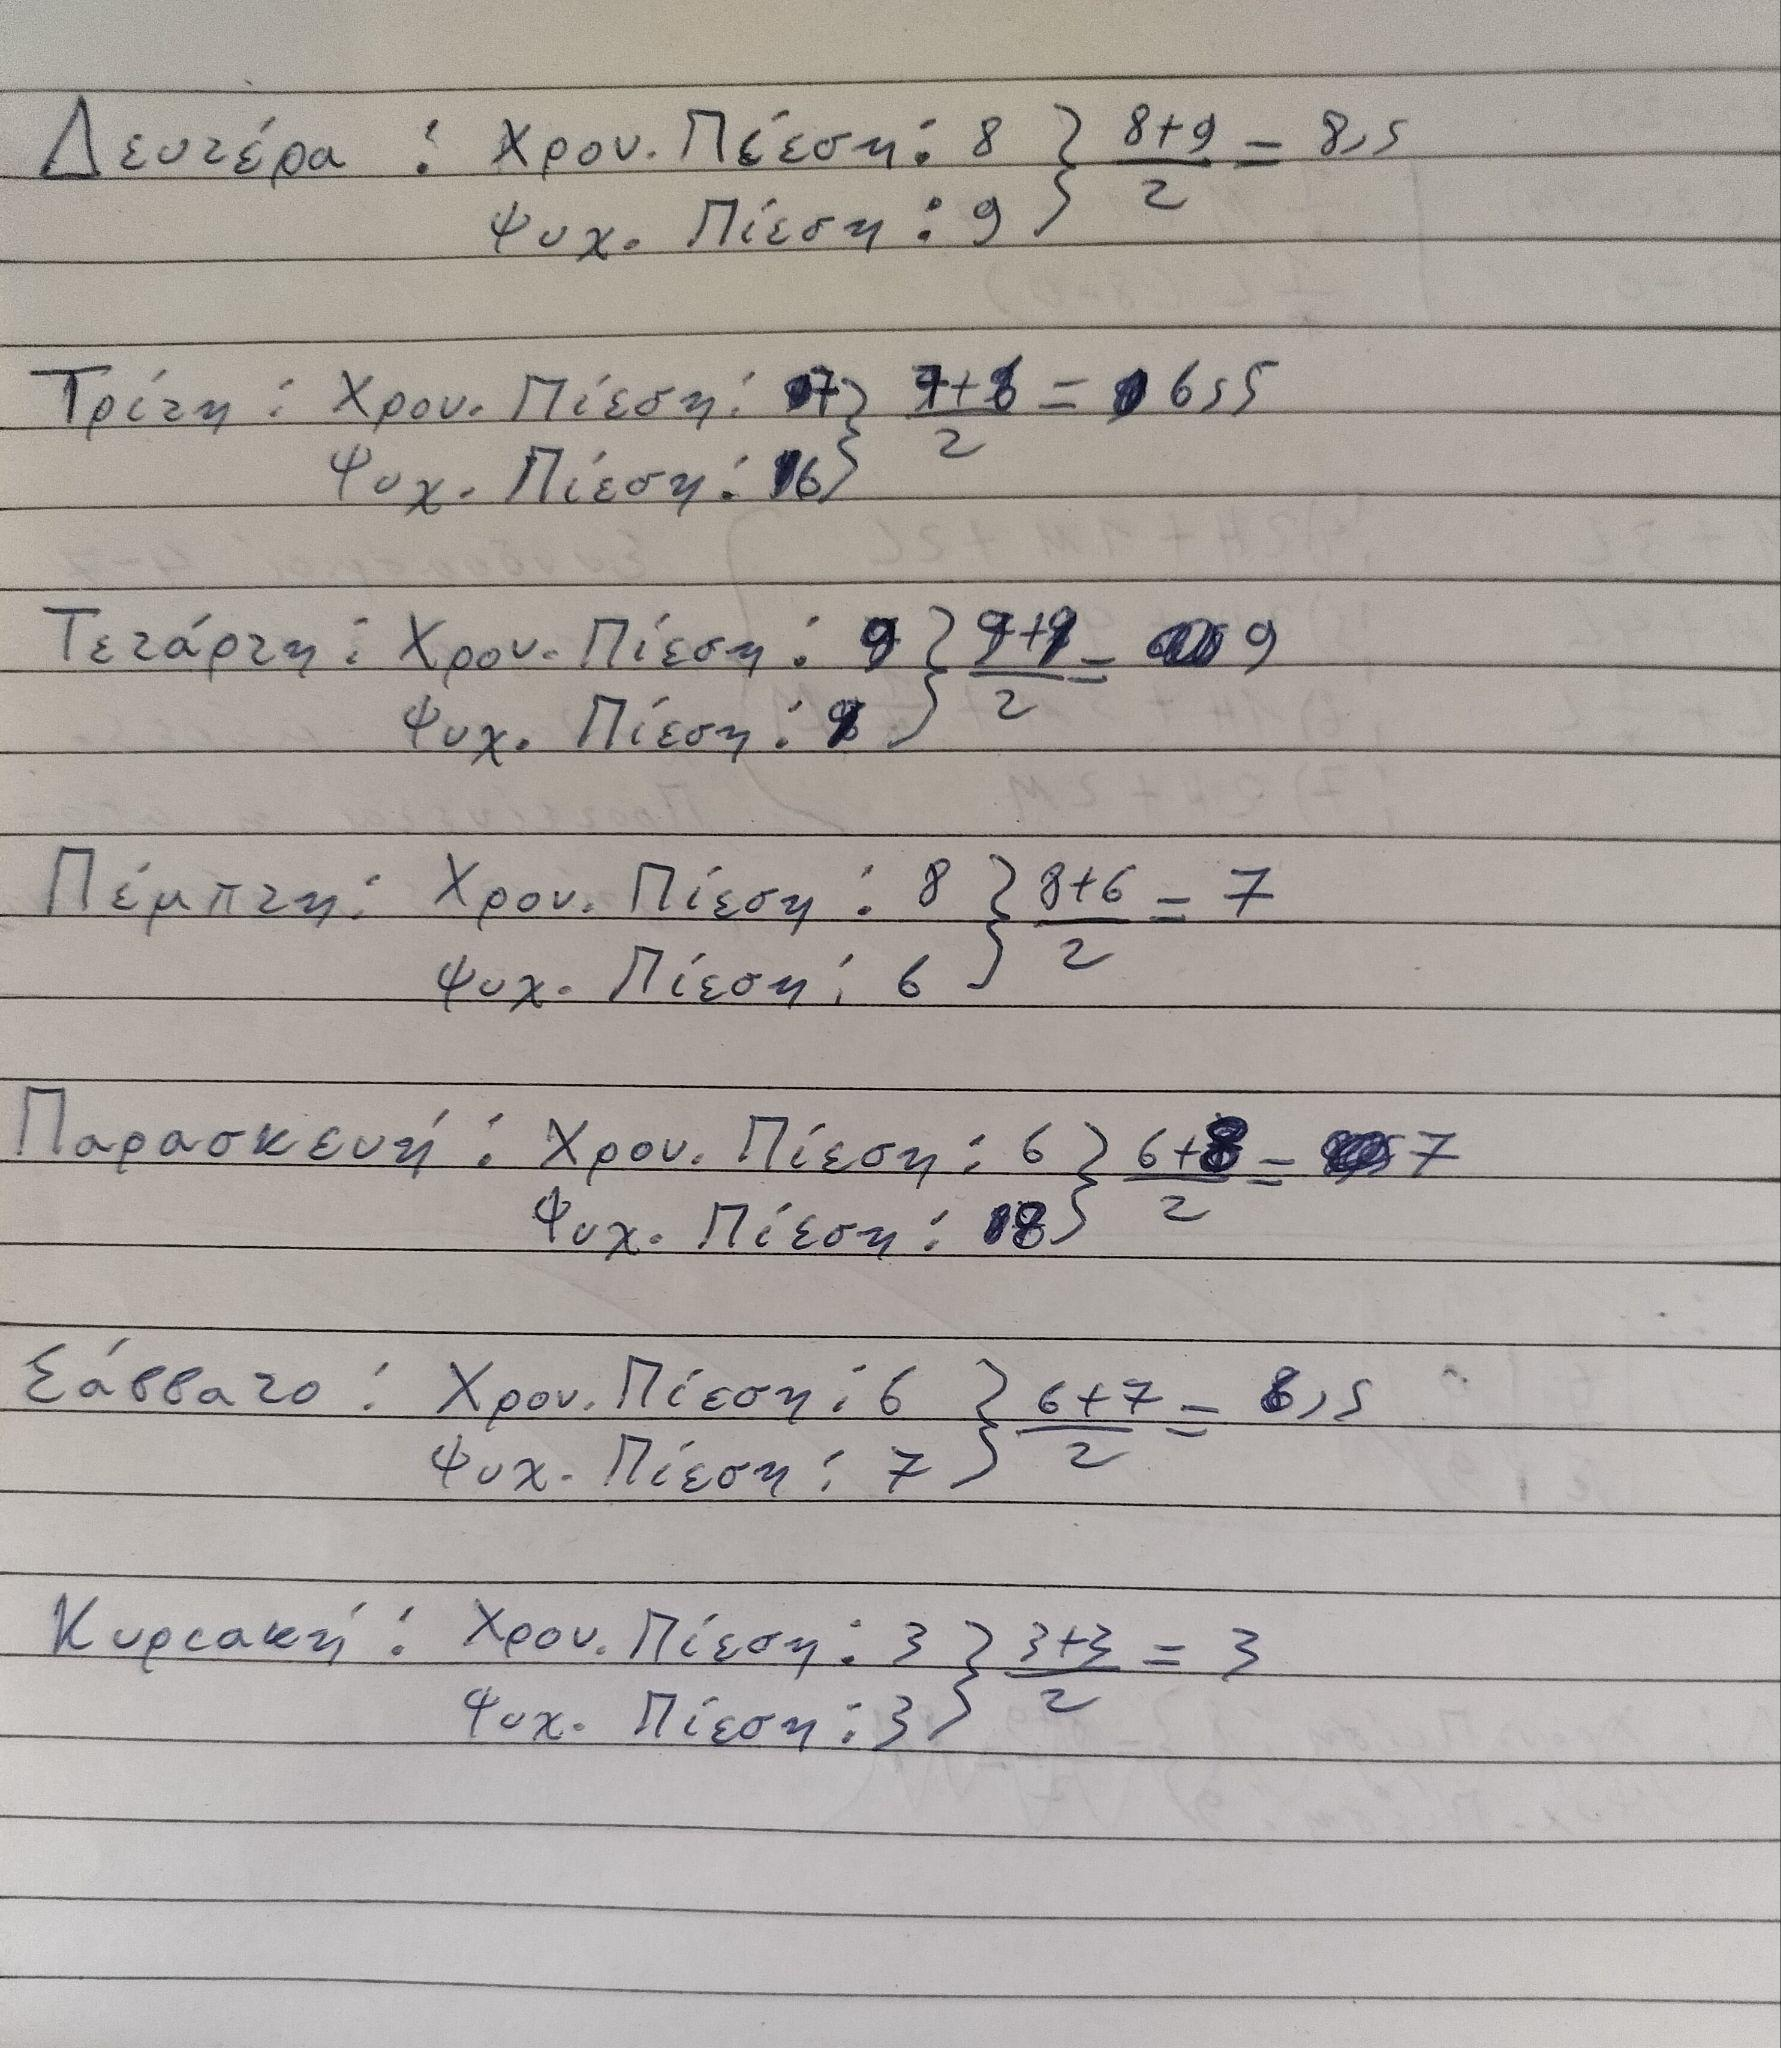 Δευτέρα : Χρον. Πίεση : 8 } 8+9/2 = 8,5
Ψυχ. Πίεση : 9
Τρίτη : Χρον. Πίεση : 7 } 7+6/2 = 6,5
Ψυχ. Πίεση : 6
Τετάρτη : Χρον. Πίεση : 9 } 9+9/2 = 9
Ψυχ. Πίεση : 9
Πέμπτη : Χρον. Πίεση : 8 } 8+6/2 = 7
Ψυχ. Πίεση : 6
Παρασκευή : Χρον. Πίεση : 6 } 6+8/2 = 7
Ψυχ. Πίεση : 8
Σάββατο : Χρον. Πίεση : 6 } 6+7/2 = 6,5
Ψυχ. Πίεση : 7
Κυριακή : Χρον. Πίεση : 3 } 3+3/2 = 3
Ψυχ. Πίεση : 3